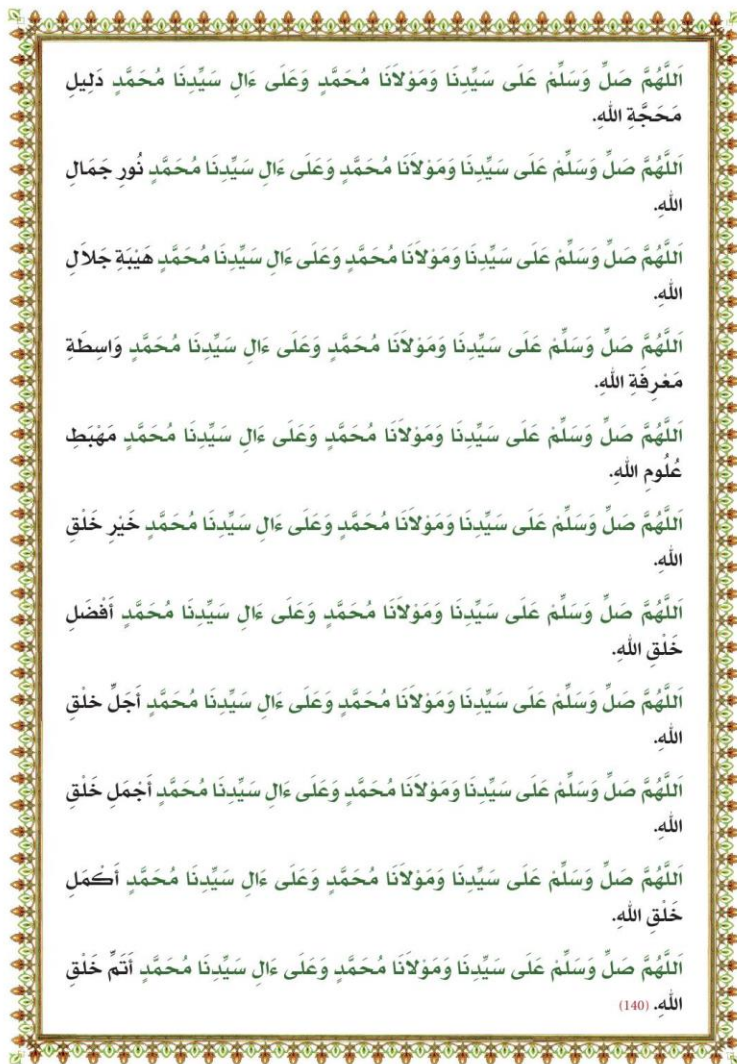 اَللَّهُمَّ صَلِّ وَسَلِّمْ عَلَى سَيِّدِنَا وَمَوْلَانَا مُحَمَّدٍ وَعَلَى ءَالِ سَيِّدِنَا مُحَمَّدٍ دَلِيلِ
مَحَجَّةِ اللهِ.
اَللَّهُمَّ صَلِّ وَسَلِّمْ عَلَى سَيِّدِنَا وَمَوْلَانَا مُحَمَّدٍ وَعَلَى ءَالِ سَيِّدِنَا مُحَمَّدٍ نُورِ جَمَالِ
اللهِ.
اَللَّهُمَّ صَلِّ وَسَلِّمْ عَلَى سَيِّدِنَا وَمَوْلَانَا مُحَمَّدٍ وَعَلَى ءَالِ سَيِّدِنَا مُحَمَّدٍ هَيْبَةِ جَلَالِ
اللهِ.
اَللَّهُمَّ صَلِّ وَسَلِّمْ عَلَى سَيِّدِنَا وَمَوْلَانَا مُحَمَّدٍ وَعَلَى ءَالِ سَيِّدِنَا مُحَمَّدٍ وَاسِطَةِ
مَعْرِفَةِ اللهِ.
اَللَّهُمَّ صَلِّ وَسَلِّمْ عَلَى سَيِّدِنَا وَمَوْلَانَا مُحَمَّدٍ وَعَلَى ءَالِ سَيِّدِنَا مُحَمَّدٍ مَهْبَطِ
عُلُومِ اللهِ.
اَللَّهُمَّ صَلِّ وَسَلِّمْ عَلَى سَيِّدِنَا وَمَوْلَانَا مُحَمَّدٍ وَعَلَى ءَالِ سَيِّدِنَا مُحَمَّدٍ خَيْرِ خَلْقِ
اللهِ.
اَللَّهُمَّ صَلِّ وَسَلِّمْ عَلَى سَيِّدِنَا وَمَوْلَانَا مُحَمَّدٍ وَعَلَى ءَالِ سَيِّدِنَا مُحَمَّدٍ أَفْضَلِ
خَلْقِ اللهِ.
اَللَّهُمَّ صَلِّ وَسَلِّمْ عَلَى سَيِّدِنَا وَمَوْلَانَا مُحَمَّدٍ وَعَلَى ءَالِ سَيِّدِنَا مُحَمَّدٍ أَجَلِّ خَلْقِ
اللهِ.
اَللَّهُمَّ صَلِّ وَسَلِّمْ عَلَى سَيِّدِنَا وَمَوْلَانَا مُحَمَّدٍ وَعَلَى ءَالِ سَيِّدِنَا مُحَمَّدٍ أَجْمَلِ خَلْقِ
اللهِ.
اَللَّهُمَّ صَلِّ وَسَلِّمْ عَلَى سَيِّدِنَا وَمَوْلَانَا مُحَمَّدٍ وَعَلَى ءَالِ سَيِّدِنَا مُحَمَّدٍ أَكْمَلِ
خَلْقِ اللهِ.
اَللَّهُمَّ صَلِّ وَسَلِّمْ عَلَى سَيِّدِنَا وَمَوْلَانَا مُحَمَّدٍ وَعَلَى ءَالِ سَيِّدِنَا مُحَمَّدٍ أَتَمِّ خَلْقِ
اللهِ. (140)